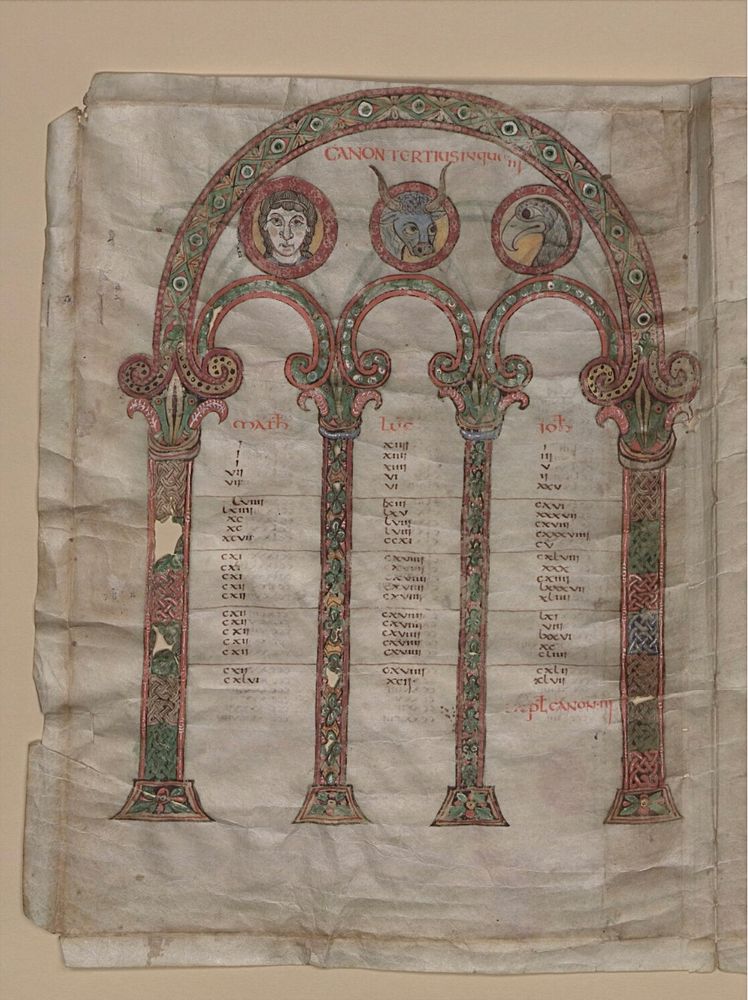 CANON TERTIUS IN QUO III
math luc joh
i xiiii i
i xiiii iii
i xiiii v
vii vi ii
vii vi xxv
lviiii lxiii cxvi
lxiiii lxv xxxvii
xc lviii cxviii
xc lviii cxxxviiii
xcvii ccxi cv
cxi cxviiii cxlviii
cxi xxx
cxi cxviiii cxiiii
cxii cxviiii lxxxvii
cxii cxviiii xliiii
cxii cxviiii lxi
cxii cxviiii viii
cxii cxviiii lxxvi
cxii cxviiii xc
cxii cxviiii
cxii cxviiii cxlii
cxlvi xcii xlvii
canon iii